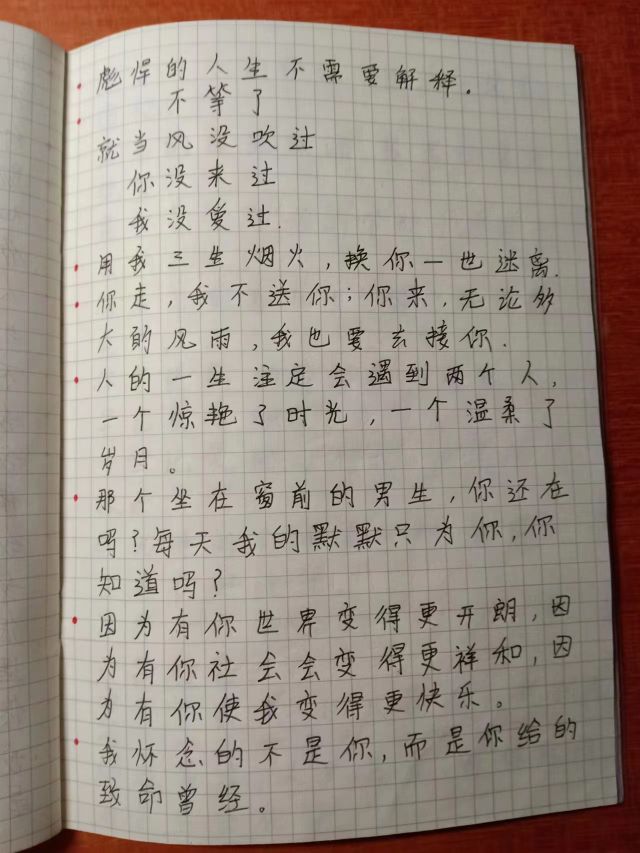 彪悍的人生不需要解释.
不等了
就当风没吹过
你没来过
我没爱过.
用我三生烟火,换你一世迷离.
你走,我不送你;你来,无论多
大的风雨,我也要去接你.
人的一生注定会遇到两个人,
一个惊艳了时光,一个温柔了
岁月。
那个坐在窗前的男生,你还在
吗?每天我的默默只为你,你
知道吗?
因为有你世界变得更开朗,因
为有你社会会变得更祥和,因
为有你使我变得更快乐。
我怀念的不是你,而是你给的
致命曾经。